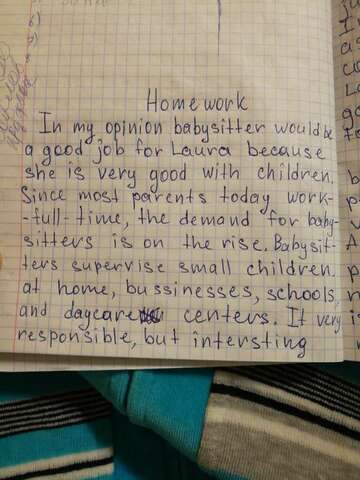 Homework
In my opinion babysitter would be
a good job for Laura because
she is very good with children.
Since most parents today work-
-full-time, the demand for baby-
sitters is on the rise. Babysit-
ters supervise small children.
at home, bussinesses, schools,
and daycare centers. It very
responsible, but intersting